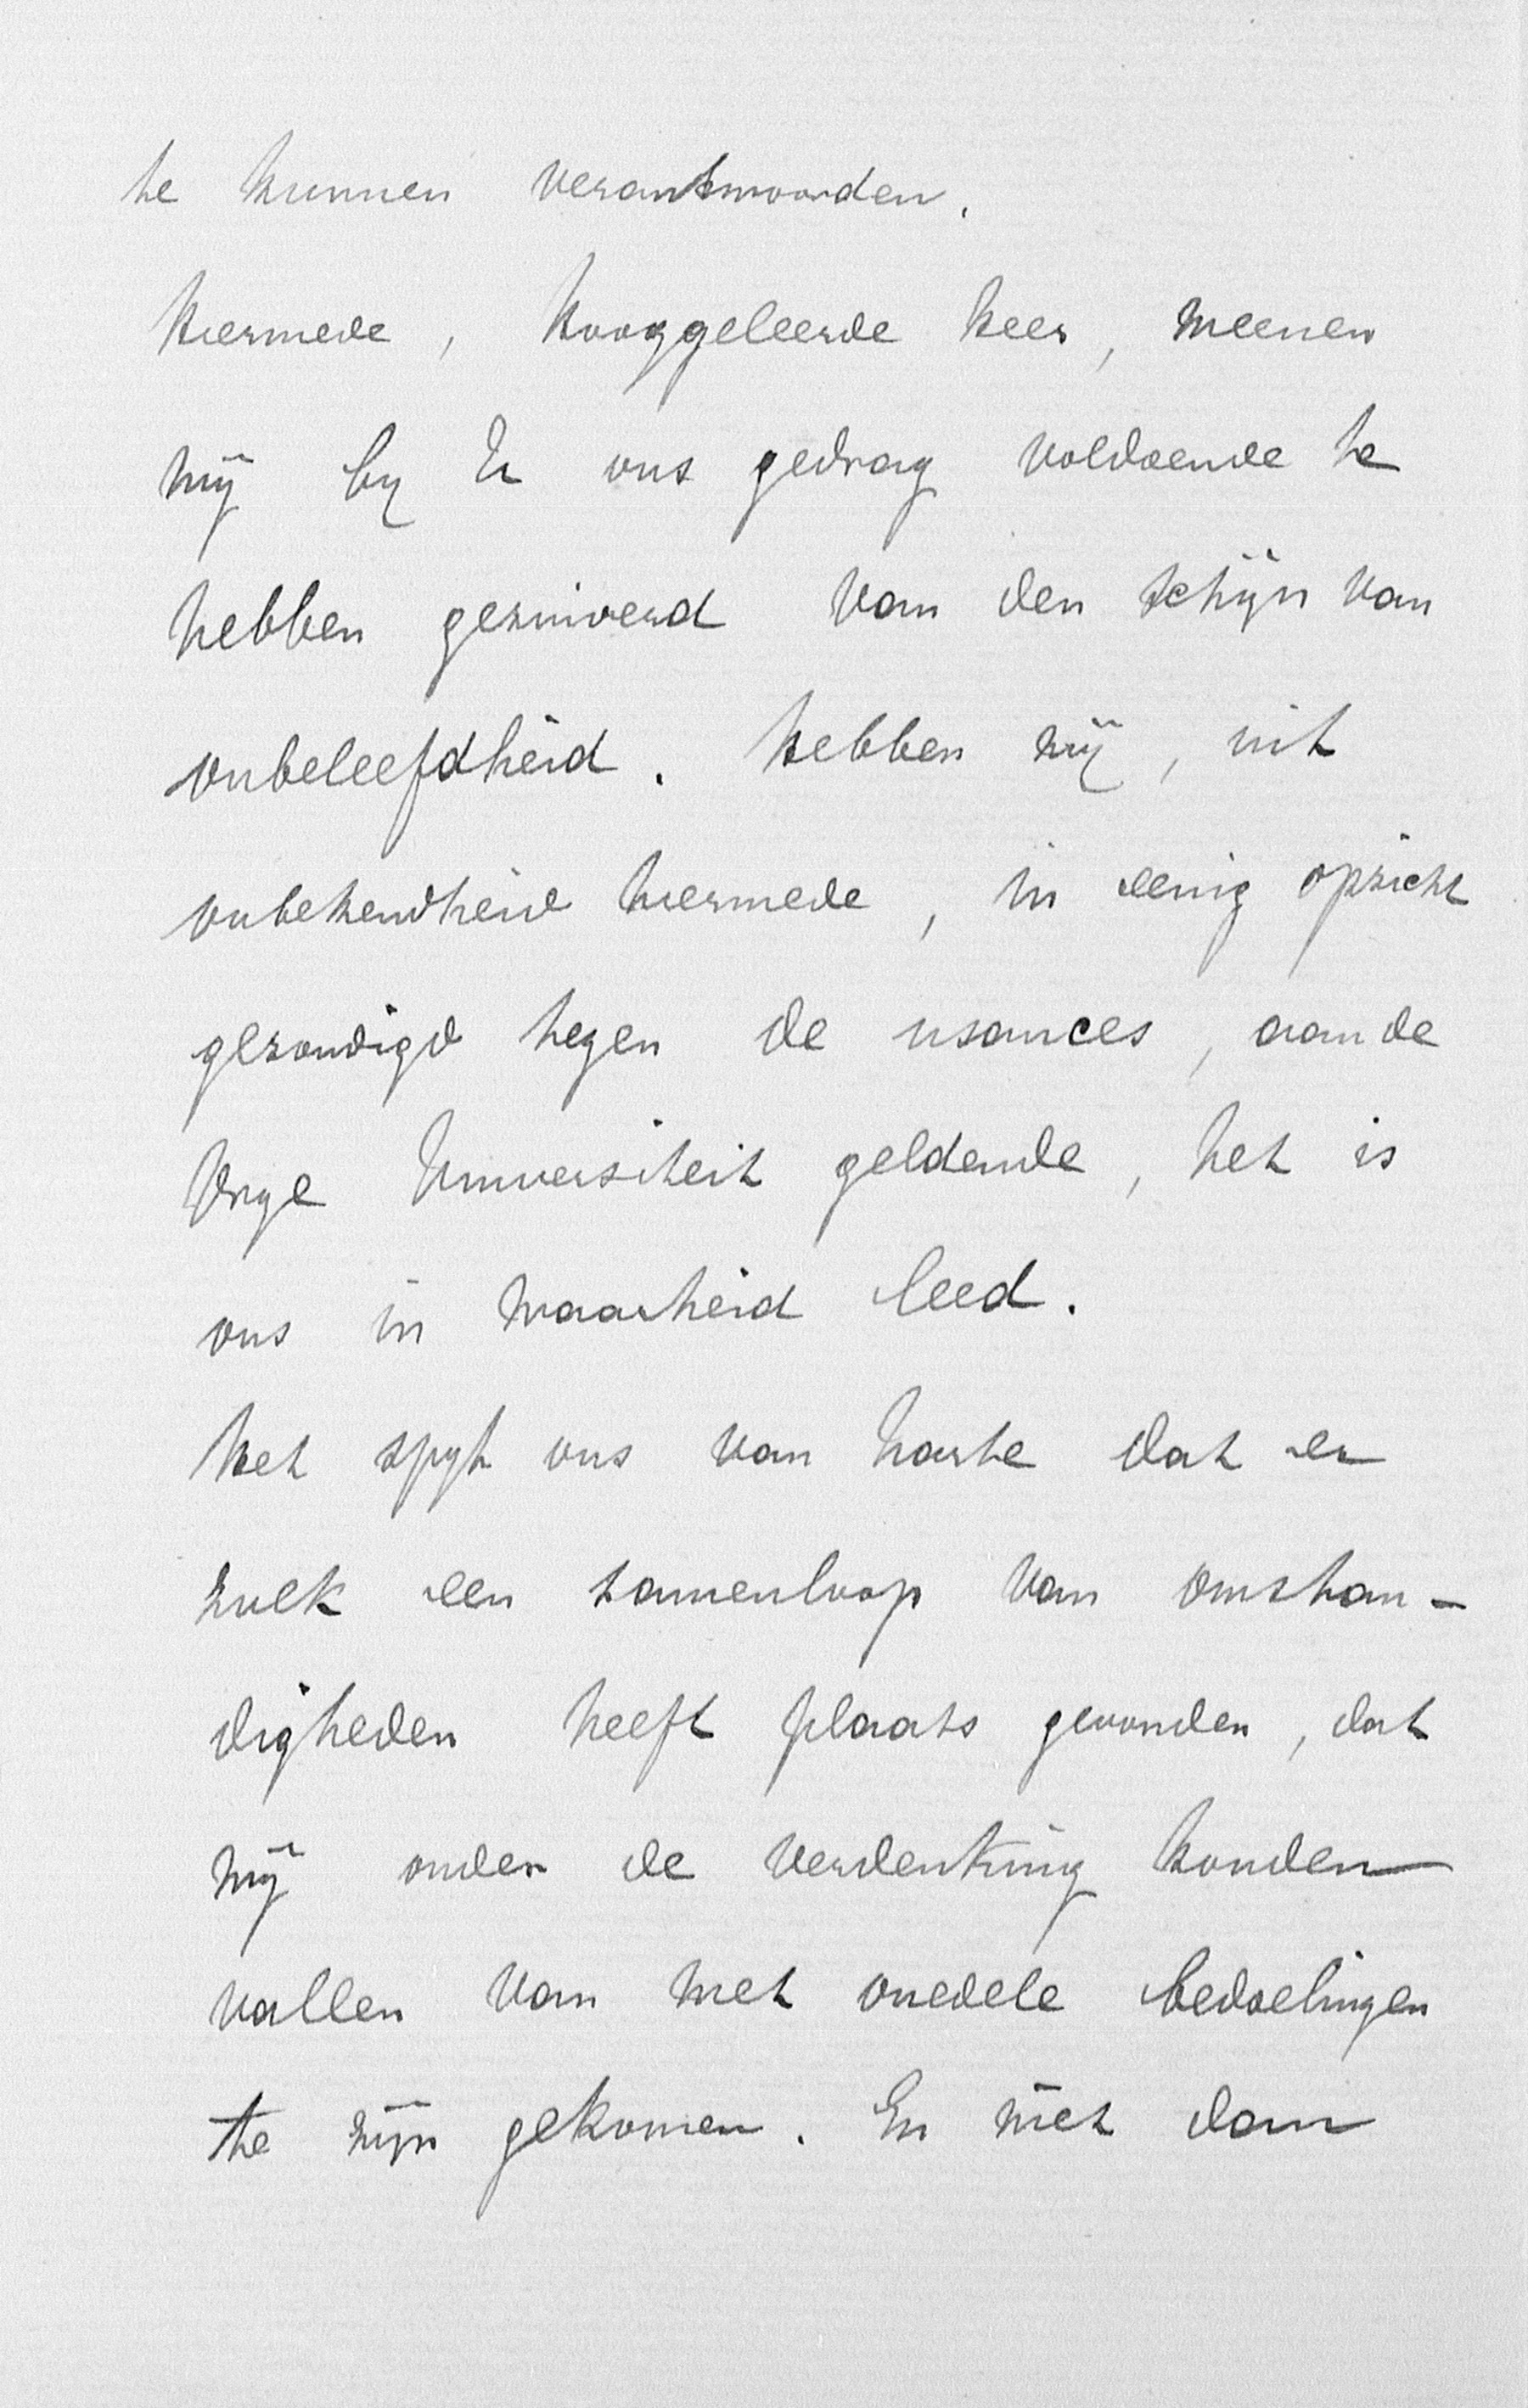 te kunnen verantwoorden.
Hiermede, Hooggeleerde Heer, meenen
wij by U ons gedrag voldoende te
hebben gezuiverd van den schijn van
onbeleefdheid. Hebben wij, uit
onbekendheid hiermede, in eenig opzicht
gezondigd tegen de usances, aan de
Vrye Universiteit geldende, het is
ons in waarheid leed.
Het spyt ons van harte dat er
zulk een samenloop van omstan-
digheden heeft plaats gevonden, dat
wij onder de verdenking konden
vallen van met onedele bedoelingen
te zijn gekomen. En niet dan